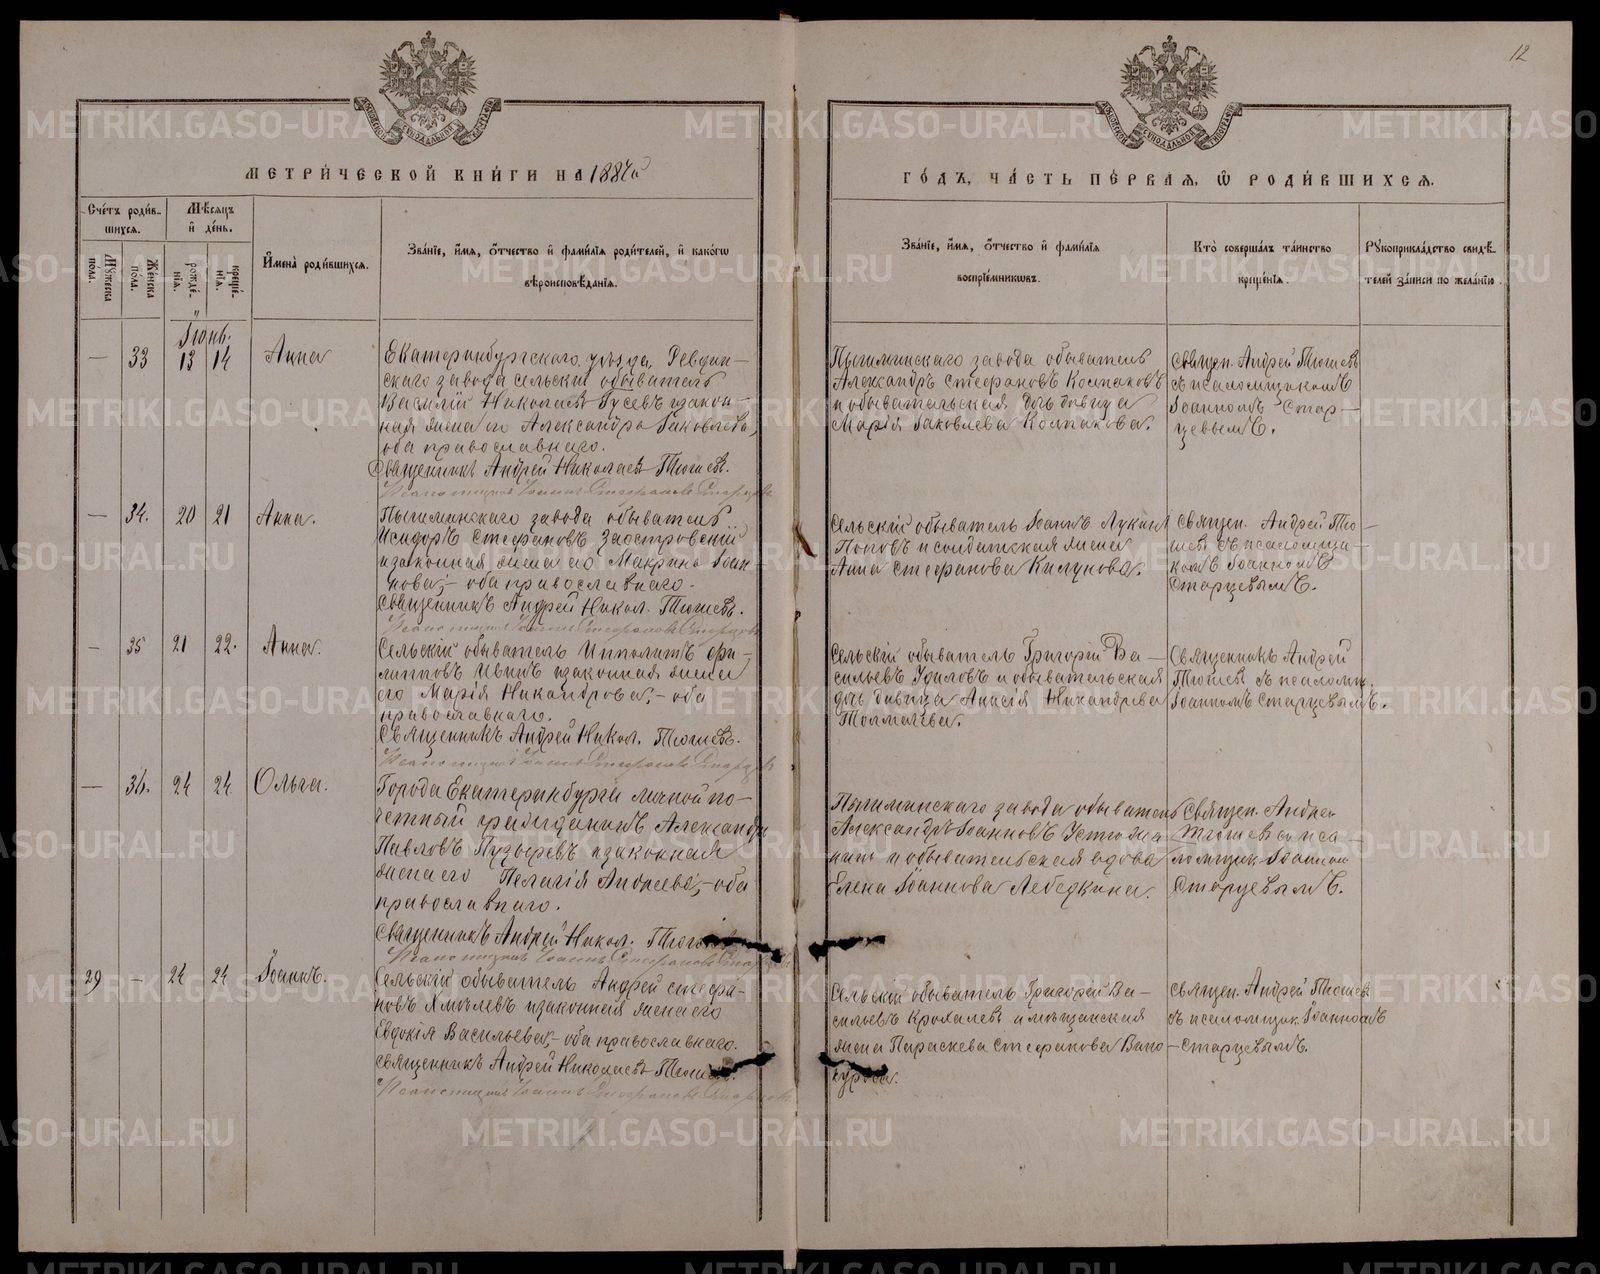 12
МЕТРИ́ЧЕСКОЙ КНИ́ГИ НА 1884й
ГО́ДЪ, ЧА́СТЬ ПЕ́РВАЯ, Ѡ РОДИ́ВШИХСЯ.
Сче́тъ роди́в-
шихся.
Мѣ́сяцъ
и҆ де́нь.
Мꙋ́жеска
пола.
Же́нска
по́ла.
рожде́-
нїя.
креще́-
нїя.
И҆мена̀ роди́вшихся.
Зва́нїе, и҆́мя, ѻ҆́тчество и҆ фами́лїя роди́телей, и҆ како́гѡ
вѣроисповѣ́данїя.
Зва́нїе, и҆́мя, ѻ҆́тчество и҆ фами́лїя
воспрїе́мникѡвъ.
Кто̀ соверша́лъ та́инство
креще́нїя.
Рꙋкоприкла́дство свидѣ́-
телей за́писи по жела́нїю.
Іюнь.
— 33 13 14 Анна
Екатеринбургскаго уѣзда, Ревдин-
скаго завода сельскій обыватель
Василій Николаевъ Гусевъ и закон-
ная жена его Александра Іаковлева,
оба православнаго.
Священникъ Андрей Николаевъ Тюшевъ.
Псаломщикъ Іоаннъ Стефановъ Старцевъ
Пышминскаго завода обыватель
Александръ Стефановъ Колпаковъ
и обывательская дочь девица
Марія Іаковлева Колпакова.
Священ. Андрей Тюшевъ
съ псаломщикомъ
Іоанномъ Стар-
цевымъ.
— 34. 20 21 Анна.
Пышминскаго завода обыватель
Исидоръ Стефановъ Заостровскій
и законная жена его Макрина Іоан-
нова, — оба православнаго.
Священникъ Андрей Никол. Тюшевъ.
Псаломщикъ Іоаннъ Стефановъ Старцевъ
Сельскій обыватель Іоаннъ Лукинъ
Поповъ и солдатская жена
Анна Стефанова Килунова.
Священ. Андрей Тю-
шевъ съ псаломщи-
комъ Іоанномъ
Старцевымъ.
— 35 21 22. Анна.
Сельскій обыватель Ипполитъ Фи-
липповъ Ивинъ и законная жена
его Марія Никандрова, — оба
православнаго.
Священникъ Андрей Никол. Тюшевъ.
Псаломщикъ Іоаннъ Стефановъ Старцевъ
Сельскій обыватель Григорій Ва-
сильевъ и обывательская
дчь девица Никандрова
Толмачева.
Священникъ Андрей
Тюшевъ съ псаломщ.
Іоанномъ Старцевымъ.
— 36. 24 24 Ольга.
Города Екатеринбурга личной по-
четный гражданинъ Александръ
Павловъ Пузыревъ и законная
жена его Пелагія Андреева, — оба
православнаго.
Священникъ Андрей Никол. Тюшевъ
Псаломщикъ Іоаннъ Стефановъ Старцевъ
Пышминскаго завода обыватель
Александръ Іоанновъ Устюжа-
нинъ и обывательская вдова
Елена Іоаннова Лебедкина.
Священ. Андрей
Тюшевъ съ пса-
ломщик. Іоанном
Старцевымъ.
29 — 24 24 Іоаннъ.
Сельскій обыватель Андрей Стефа-
новъ Хмѣлевъ и законная жена его
Евдокія Васильева, — оба православнаго.
Священникъ Андрей Николаевъ Тюшевъ.
Псаломщикъ Іоаннъ Стефановъ Старцевъ
Сельскій обыватель Григорій Ва-
сильевъ Крохалевъ и мѣщанская
жена Параскева Стефанова Вино-
курова.
Священ. Андрей Тюшевъ
съ псаломщик. Іоанномъ
Старцевымъ.
METRIKI.GASO-URAL.RU